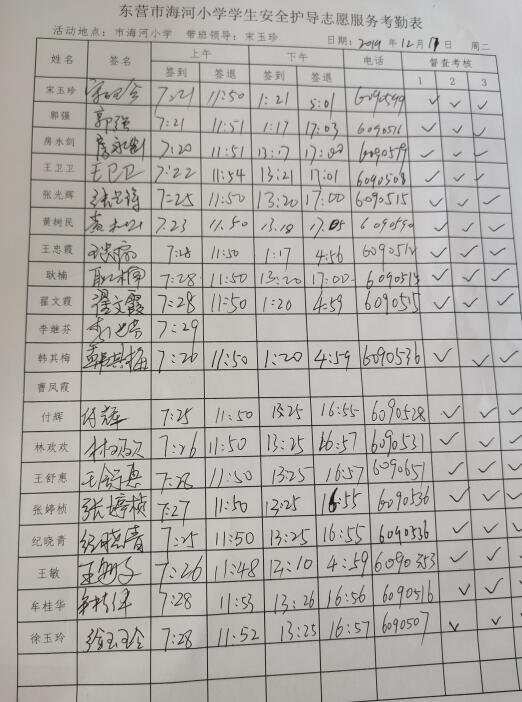 东营市海河小学学生安全护导志愿服务考勤表
活动地点：市海河小学 带班领导：宋玉珍 日期：2019年12月17日 周二
姓名 签名 上午 下午 电话 督查考核
签到 签退 签到 签退 1 2 3
宋玉珍 7:21 11:50 1:21 5:01 6090599 ✓ ✓ ✓
郭强 郭强 7:21 11:51 1:17 17:03 6090516 ✓ ✓ ✓
房永剑 房永剑 7:20 11:51 13:17 17:00 6090579 ✓ ✓ ✓
王卫卫 王卫卫 7:22 11:54 13:21 17:01 6090508 ✓ ✓ ✓
张光辉 7:25 11:50 13:20 17:00 6090515 ✓ ✓ ✓
黄树民 7:23 11:50 13:18 17:05 6090590 ✓ ✓ ✓
王忠霞 7:28 11:50 1:17 4:56 ✓ ✓ ✓
耿楠 耿楠 7:28 11:50 13:20 17:00 6090515 ✓ ✓ ✓
翟文霞 翟文霞 7:28 11:50 1:20 4:59 6090515 ✓ ✓ ✓
李继芬 7:29
韩其梅 韩其梅 7:26 11:50 1:20 4:59 6090536 ✓ ✓ ✓
曹凤霞
付辉 付辉 7:25 11:50 13:25 16:55 6090528 ✓ ✓ ✓
林欢欢 林欢欢 7:26 11:50 13:25 16:57 6090531 ✓ ✓ ✓
王舒惠 王舒惠 7:28 11:50 13:25 16:57 6090651 ✓ ✓ ✓
张婷桢 张婷桢 7:27 11:50 13:25 16:55 6090536 ✓ ✓ ✓
纪晓青 纪晓青 7:25 11:50 13:25 16:55 6090536 ✓ ✓ ✓
王敏 7:26 11:48 13:10 4:59 6090353 ✓ ✓ ✓
牟桂华 7:28 11:53 13:26 16:56 6090516 ✓ ✓
徐玉玲 徐玉玲 7:28 11:52 13:25 16:57 6090507 ✓ ✓ ✓